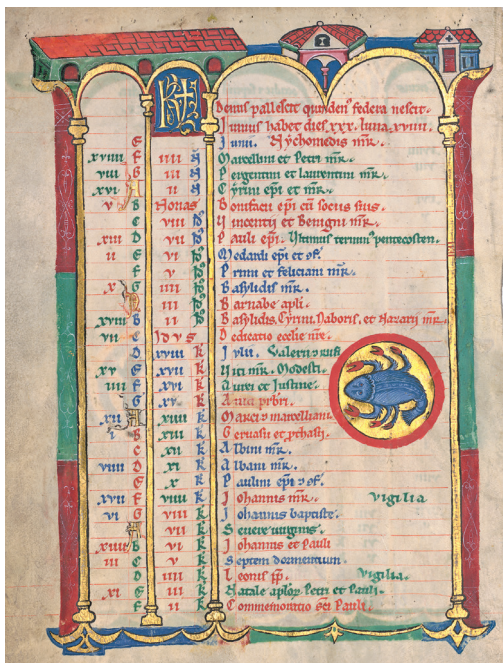 KL
Denus pallescit quindenus federa nescit.
Junius habet dies xxx. luna. xxviiii.
E Junii. Nychomedis mr.
xviiii F iiii N Marcellini et Petri mr.
viii G iii N Pergentini et laurentini mr.
xvi A ii N Cyrini epi et mr.
v B Nonas Bonifacii epi cu socus suis.
C viii Id Vincentii et Benigni mr.
xiii D vii Id Pauli epi. Vltimus terminus pentecosten.
ii E vi Id Medardi epi et cf.
F v Id Primi et feliciani mr.
x G Id Basylidis mr.
iii Id Barnabe apli.
xviii B Id Basylidis, Cyrini, Naboris, et Nazarii mr.
vii C Idvs Dedicatio ecclie
D xviii k Julii. Valerii
xv E xvii k Viti mr. Modesti.
iiii F xvi k Aurei et Justine.
G xv k prbri.
xii A xiiii k Marci marcelliani.
i B xiii k Gervasii et pthasii.
C xii k Albini mr.
viiii D xi k Albani mr.
E x k Paulini epi cf.
xvii F viiii k Johannis mr. vigilia
vi G k Johannis baptiste.
vii k Severe virginis.
xiiii B vi k Johannis et Pauli
iii C v k Septem dormentium
D iiii k Leonis pp. Vigilia.
xi E iii k Natale aplor. Petri et Pauli.
F ii k Commemoratio sci Pauli.